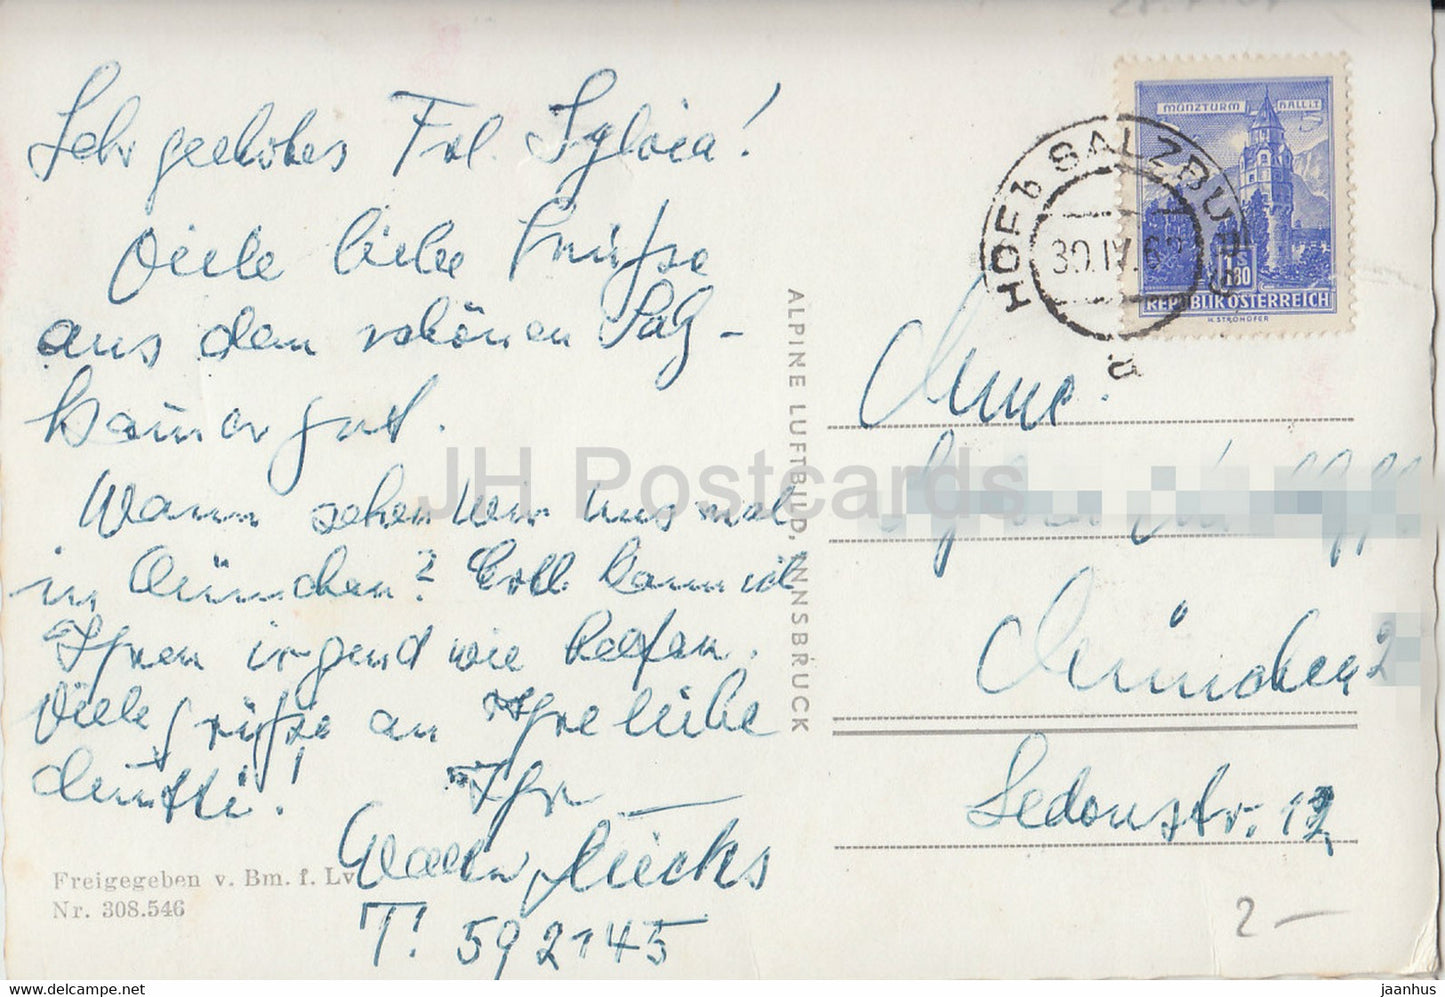 Sehr geehrtes Frl. Sylvia!
Viele liebe Grüße
aus dem schönen Salz-
kammergut.
Wann sehen wir uns mal
in München? Evtl. kann ich
Ihnen irgend wie helfen.
Viele Grüße an Ihre liebe
Mutti! Ihr
T. 592145
Freigegeben v. Bm. f. Lv
Nr. 308.546
ALPINE LUFTBILD, INNSBRUCK
MÜNZTURM HALL i.T.
S 1.80
REPUBLIK ÖSTERREICH
H. STROHOFER
HOF b SALZBURG
30.IV.62
a
München 2
Sedanstr. 12
2 —
JH Postcards
jaanhus
www.delcampe.net